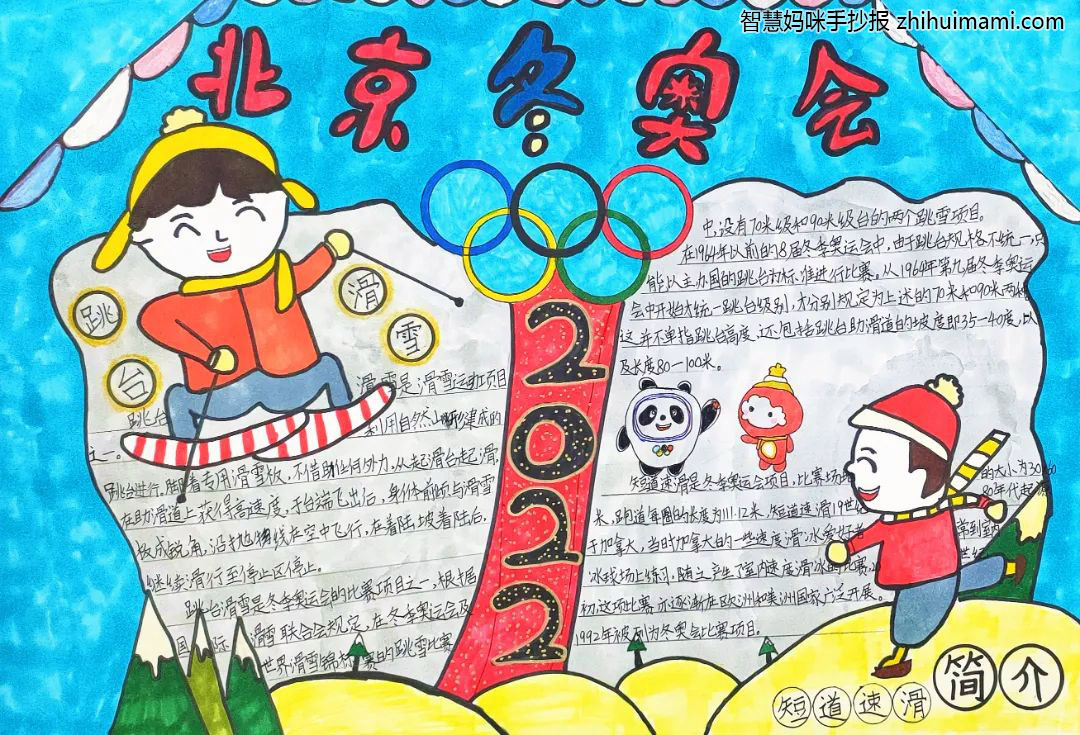 智慧妈咪手抄报 zhihuimami.com
北京冬奥会
跳台
滑雪
2022
跳台 滑雪是滑雪运动项目
之一。 利用自然山形建成的
跳台进行。脚着专用滑雪板,不借助任何外力,从起滑台起滑,
在助滑道上获得高速度,于台端飞出后,身体前倾与滑雪
板成锐角,沿抛物线在空中飞行,在着陆坡着陆后,
继续滑行至停止区停止。
跳台滑雪是冬季奥运会的比赛项目之一,根据
国际滑雪联合会规定,在冬季奥运会及
世界滑雪锦标赛的跳雪比赛
中,设有70米级和90米级台的两个跳雪项目。
在1964年以前的8届冬季奥运会中,由于跳台规格不统一,只
能以主办国的跳台为标准进行比赛。从1964年第九届冬季奥运
会中开始太统一跳台级别,才分别规定为上述的70米和90米两种
这并不单指跳台高度,还包括跳台助滑道的坡度即35—40度,以
及长度80—100米。
短道速滑是冬季奥运会项目,比赛场 的大小为30 60
米,跑道每圈的长度为111.12米。短道速滑19世 80年代起
于加拿大,当时加拿大的一些速度滑冰爱好者 常到室内
冰球场上练习,随之产生了室内速度滑冰的比赛。 世纪
初,这项比赛亦逐渐在欧洲和美洲国家广泛开展。
1992年被列为冬奥会比赛项目。
短道速滑简介